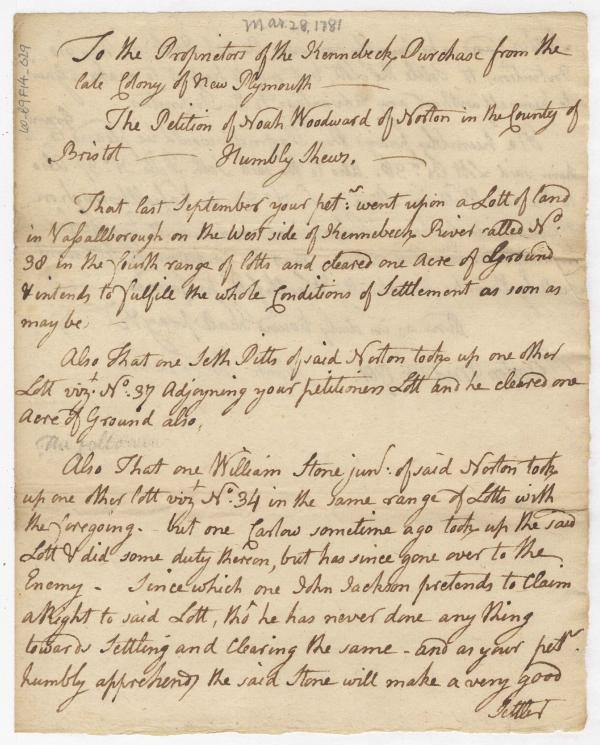 Mar. 28, 1781
60-69F14.029
To the Proprietors of the Kennebeck Purchase from the
late Colony of New Plymouth ——
The Petition of Noah Woodward of Norton in the County of
Bristol —— Humbly Shews. —
That last September your petr. went upon a Lott of land
in Vassallborough on the West side of Kennebeck River called No.
38 in the fourth range of lotts and cleared one Acre of Ground
& intends to fulfill the whole Conditions of Settlement as soon as
may be,
Also That one Seth Pitts of said Norton took up one other
Lott vizt. No. 37 Adjoyning your petitioners Lott and he cleared one
Acre of Ground also,
Also That one William Stone junr. of said Norton took
up one other lott vizt No. 34 in the same range of Lotts with
the foregoing - but one Carlow sometime ago took up the said
Lott & did some duty thereon, but has since gone over to the
Enemy - Since which one John Jackson pretends to Claim
a Right to said Lott, tho' he has never done any thing
towards Settling and Clearing the same - and as your petr.
humbly apprehends the said Stone will make a very good
Settler